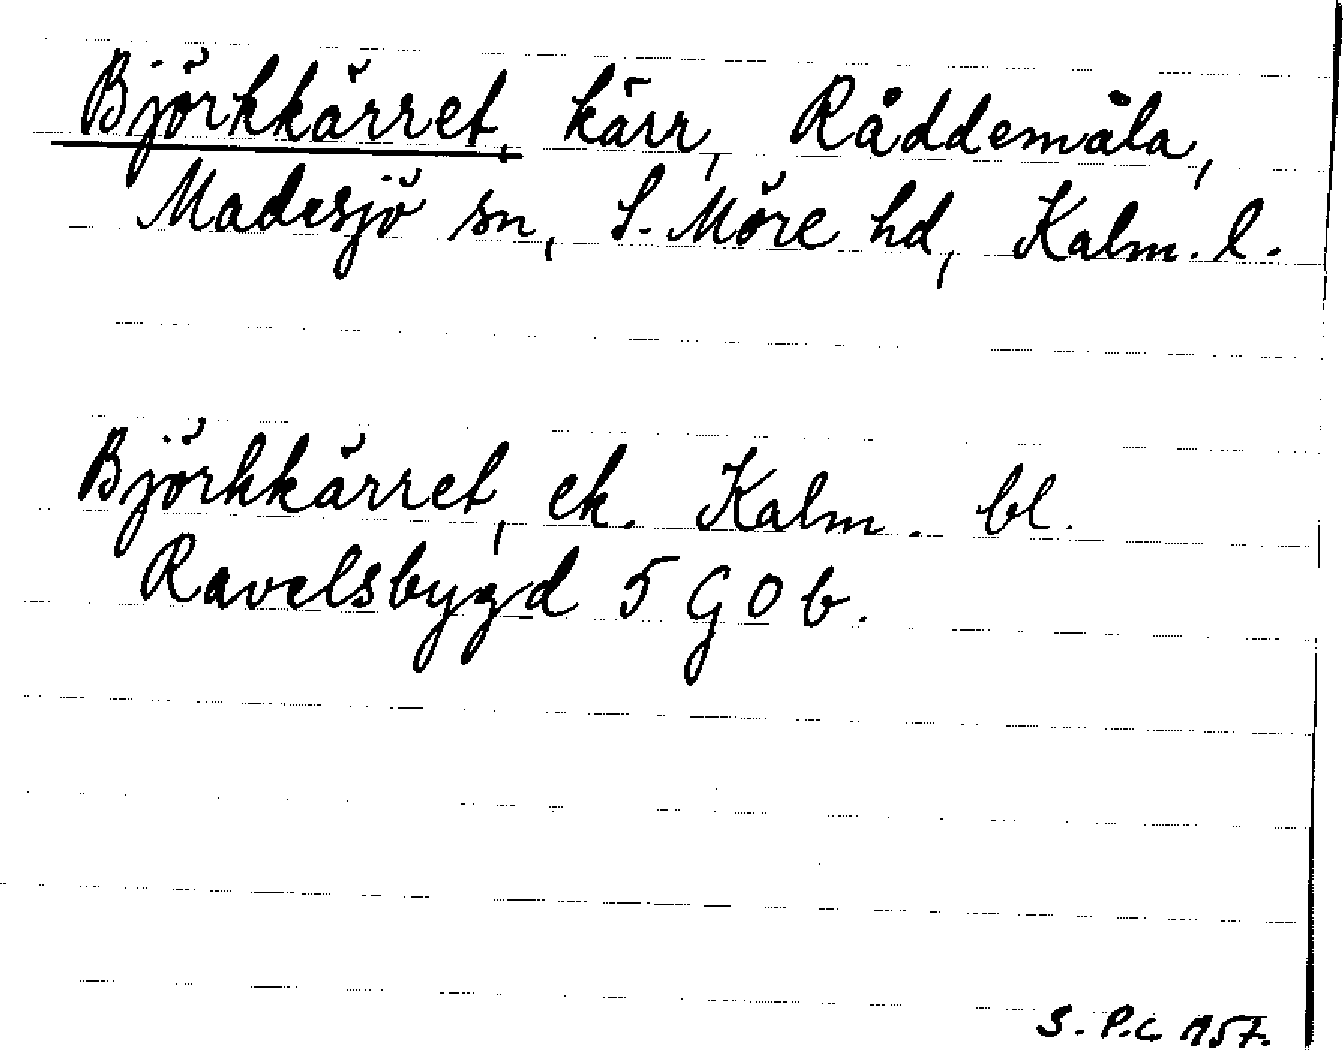 Björkkärret, kärr, Råddemåla,
Madesjö sn, S. Möre hd, Kalm. l.
Björkkärret, ek. Kalm. bl.
Ravelsbygd 5 G 0 b.
S. P.C. 1957.